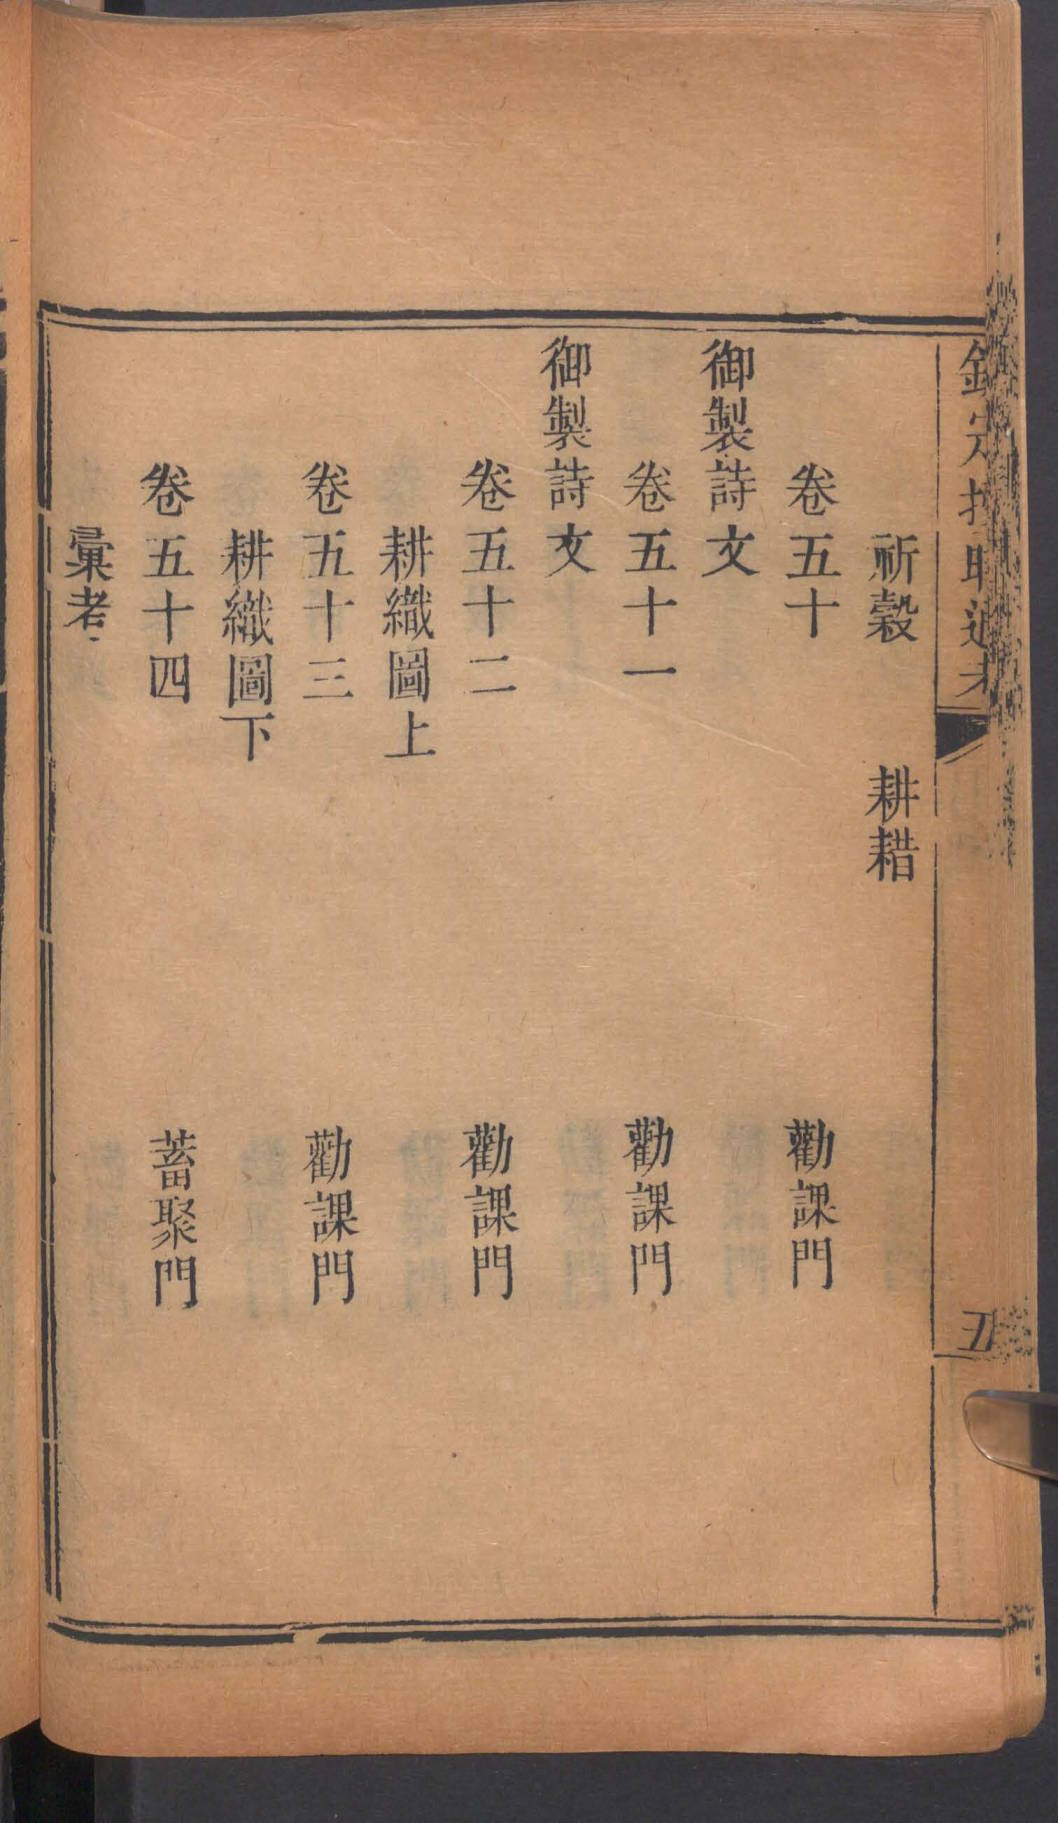 欽定授時通考 五
祈穀 耕耤
卷五十 勸課門
御製詩文
卷五十一 勸課門
御製詩文
卷五十二 勸課門
耕織圖上
卷五十三 勸課門
耕織圖下
卷五十四 蓄聚門
彙考